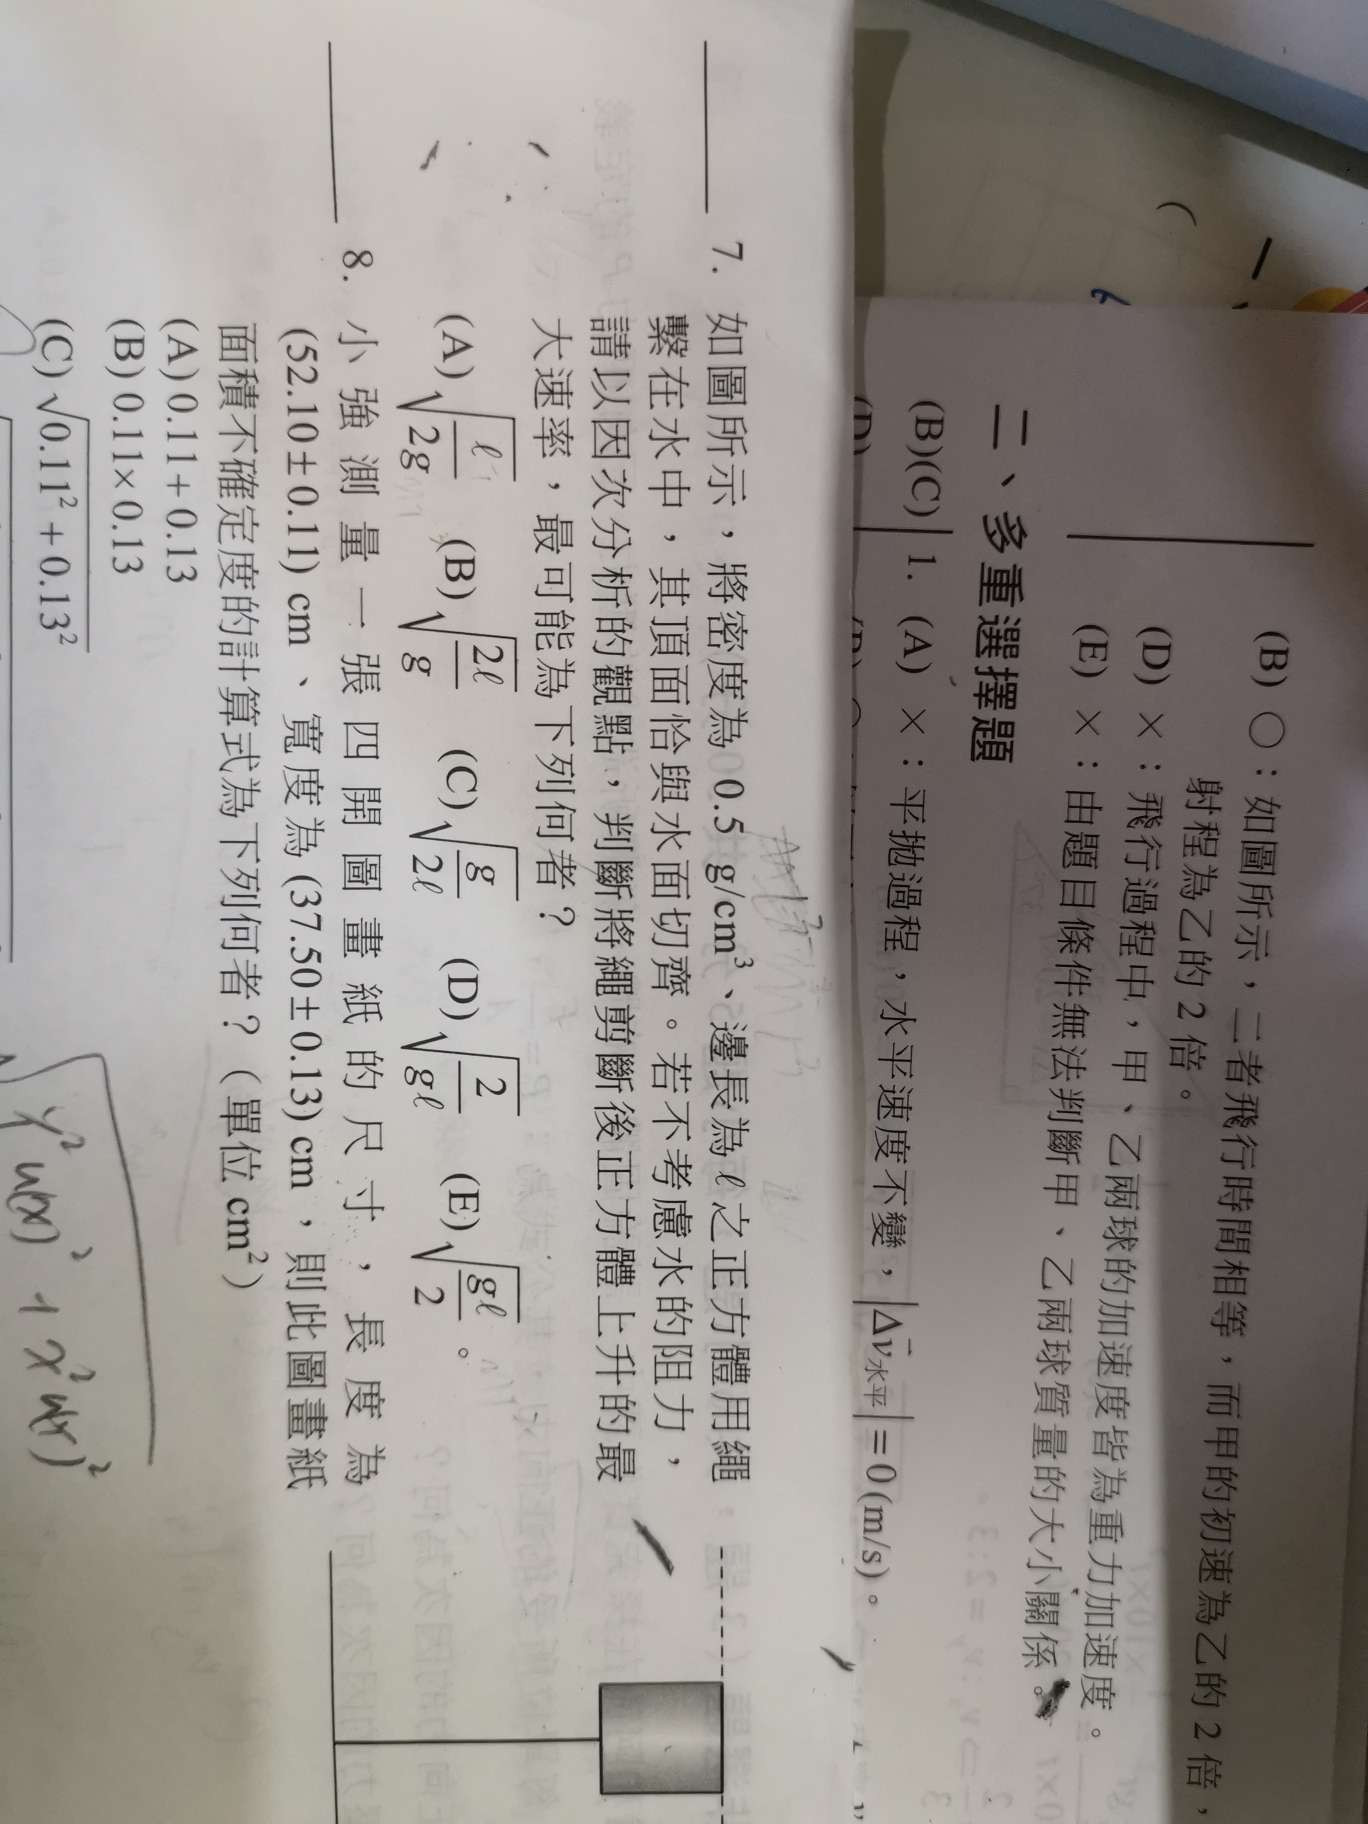 (B) ○：如圖所示，二者飛行時間相等，而甲的初速為乙的 2 倍，
射程為乙的 2 倍。
(D) ×：飛行過程中，甲、乙兩球的加速度皆為重力加速度。
(E) ×：由題目條件無法判斷甲、乙兩球質量的大小關係。
二、多重選擇題
(B)(C) 1. (A) ×：平拋過程，水平速度不變，|Δv⃗水平|＝0(m/s)。
7. 如圖所示，將密度為 0.5 g/cm³、邊長為 ℓ 之正方體用繩
繫在水中，其頂面恰與水面切齊。若不考慮水的阻力，
請以因次分析的觀點，判斷將繩剪斷後正方體上升的最
大速率，最可能為下列何者？
(A)√(ℓ/2g) (B)√(2ℓ/g) (C)√(g/2ℓ) (D)√(2/gℓ) (E)√(gℓ/2)。
8. 小強測量一張四開圖畫紙的尺寸，長度為
(52.10±0.11) cm、寬度為 (37.50±0.13) cm，則此圖畫紙
面積不確定度的計算式為下列何者？（單位 cm²）
(A)0.11＋0.13
(B)0.11×0.13
(C)√(0.11²＋0.13²)